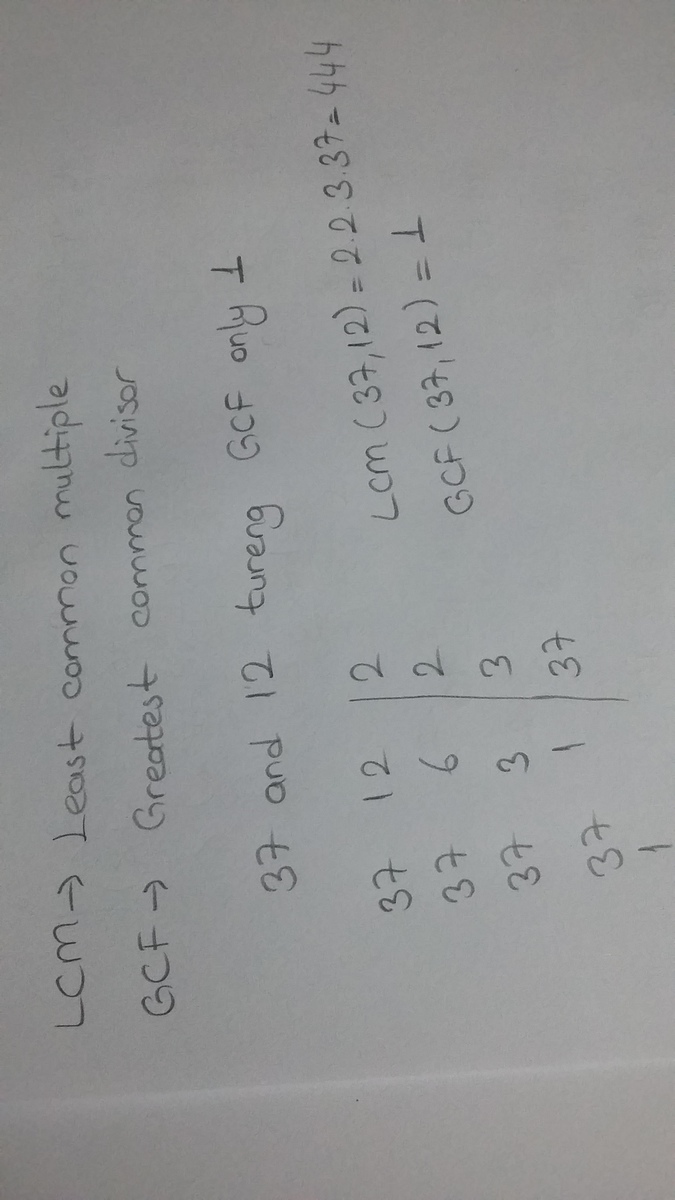 LCM → Least common multiple
GCF → Greatest common divisor
37 and 12 tureng GCF only 1
37 12 | 2
37 6 | 2
37 3 | 3
37 1 | 37
1
Lcm (37,12) = 2.2.3.37 = 444
GCF (37,12) = 1